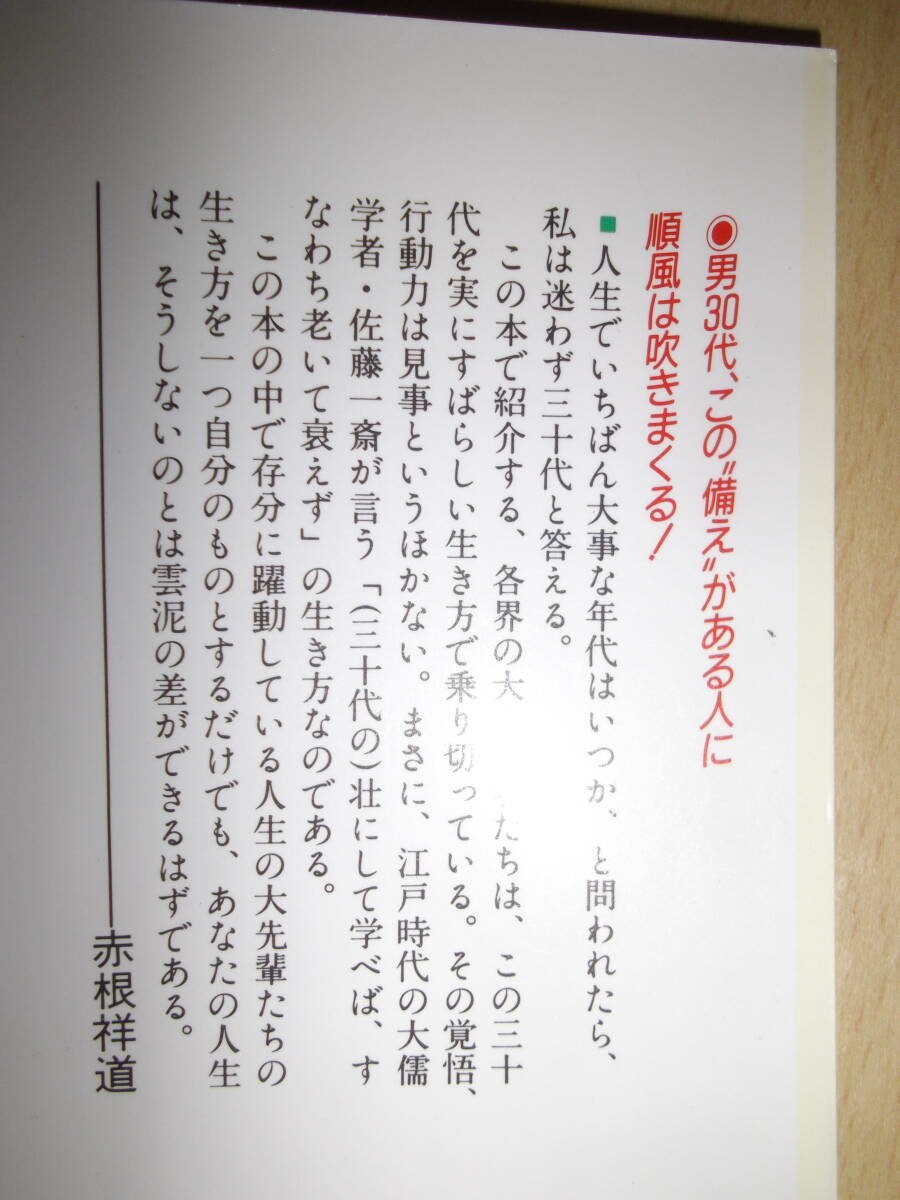 ◉男30代、この“備え”がある人に
順風は吹きまくる!
■人生でいちばん大事な年代はいつか、と問われたら、
私は迷わず三十代と答える。
この本で紹介する、各界の大 たちは、この三十
代を実にすばらしい生き方で乗り切っている。その覚悟、
行動力は見事というほかない。まさに、江戸時代の大儒
学者・佐藤一斎が言う「(三十代の)壮にして学べば、す
なわち老いて衰えず」の生き方なのである。
この本の中で存分に躍動している人生の大先輩たちの
生き方を一つ自分のものとするだけでも、あなたの人生
は、そうしないのとは雲泥の差ができるはずである。
――赤根祥道